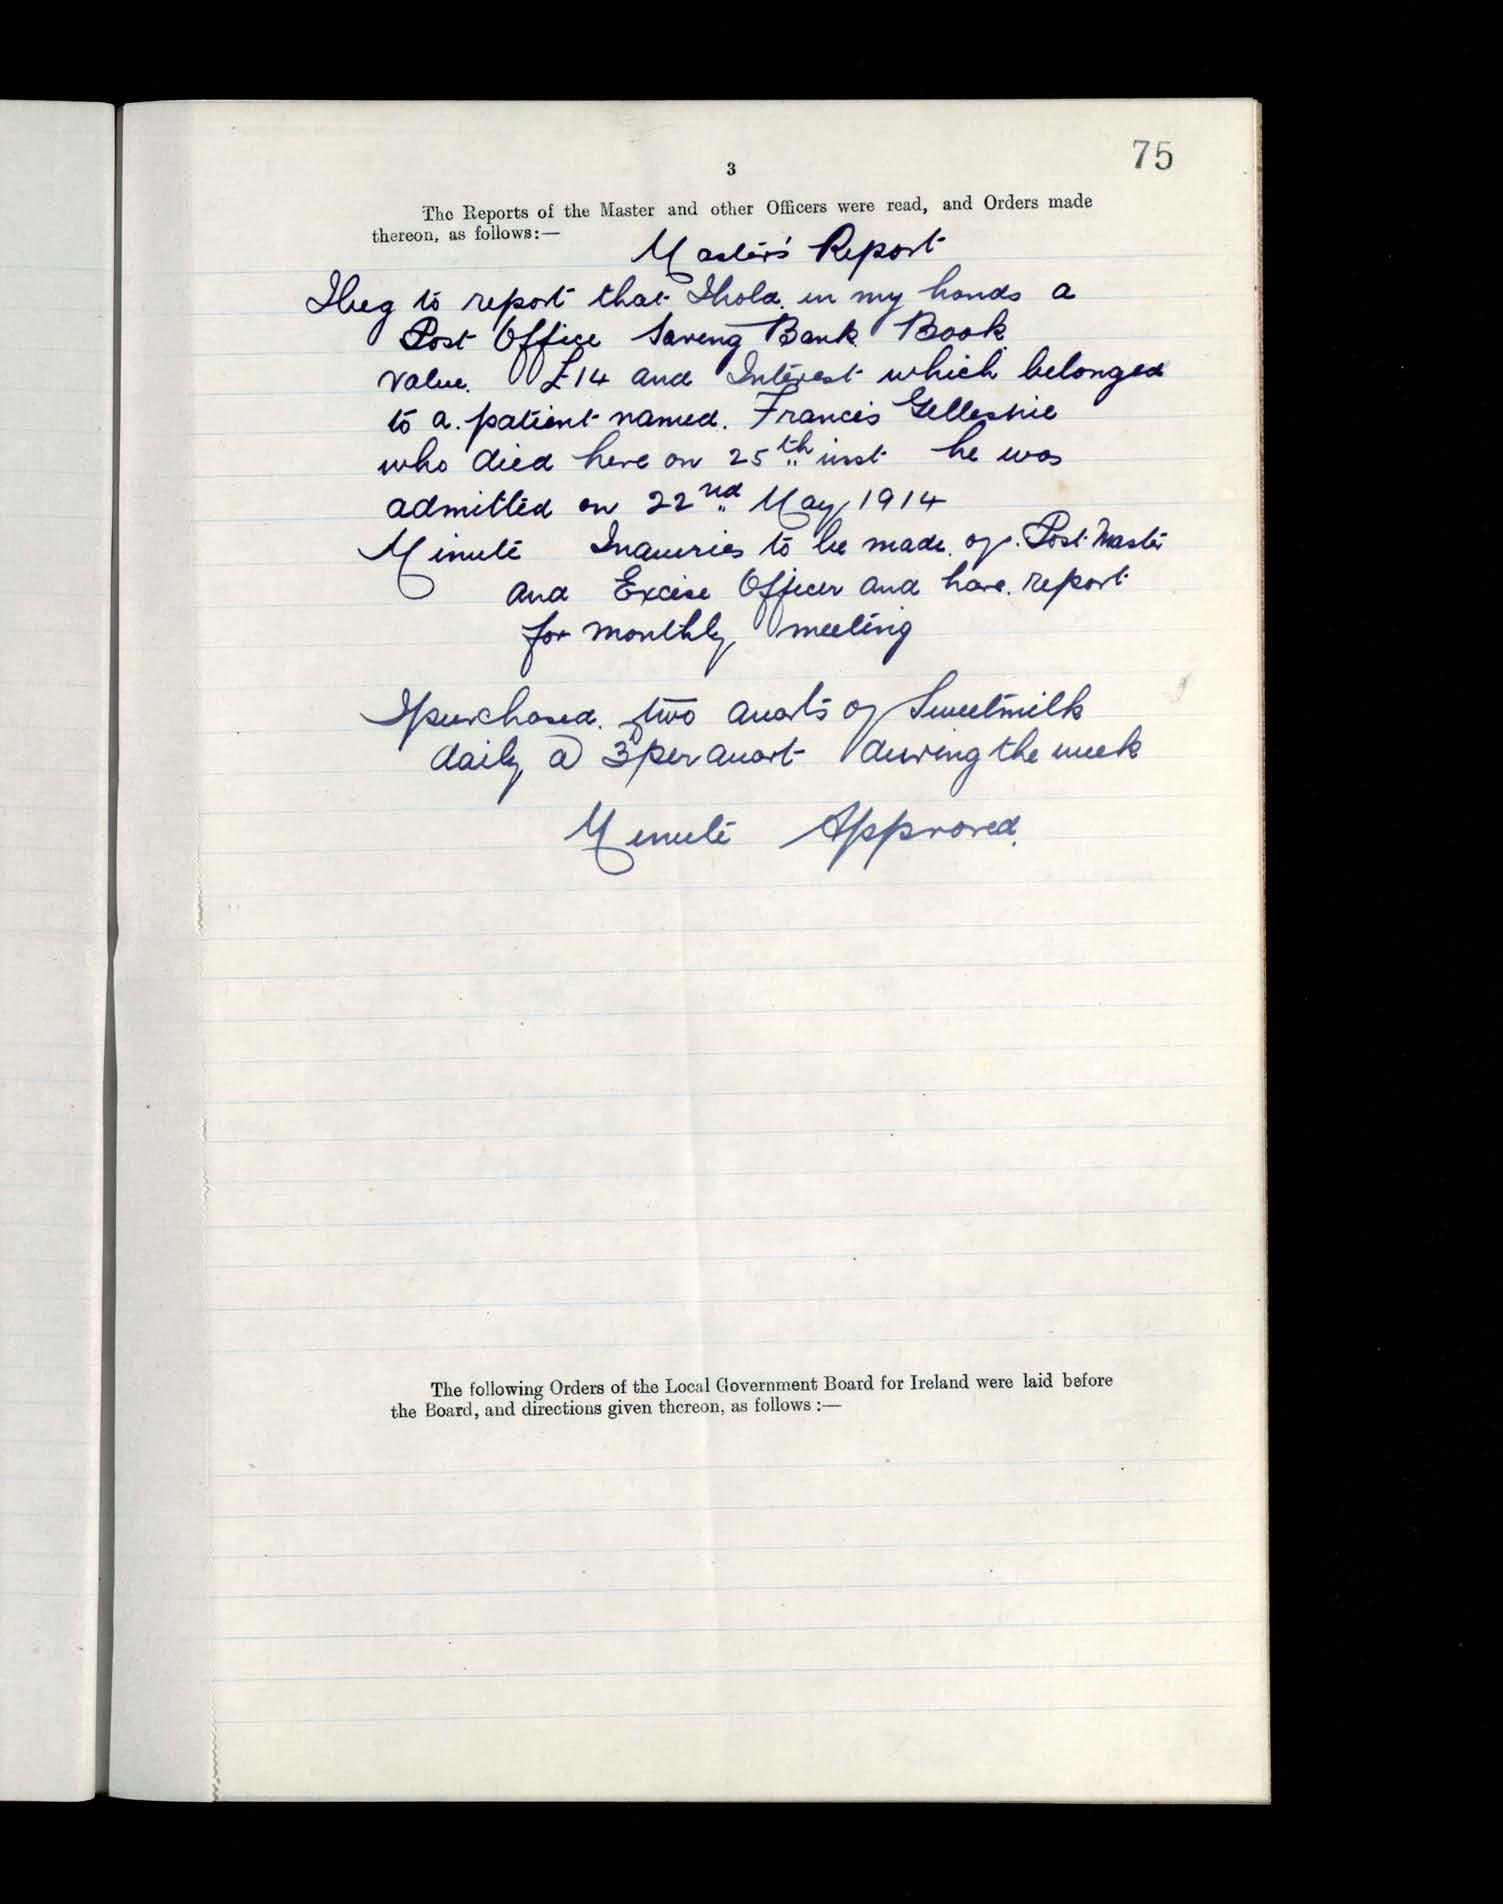 75
3
The Reports of the Master and other Officers were read, and Orders made
thereon, as follows:—
Master's Report
I beg to report that I hold in my hands a
Post Office Saving Bank Book
value £14 and Interest which belonged
to a patient named Francis Gillespie
who died here on 25th inst he was
admitted on 22nd May 1914
Minute Inquiries to be made of Post Master
and Excise Officer and have report
for monthly meeting
I purchased two quarts of Sweetmilk
daily @ 3d per quart during the week
Minute Approved.
The following Orders of the Local Government Board for Ireland were laid before
the Board, and directions given thereon, as follows :—